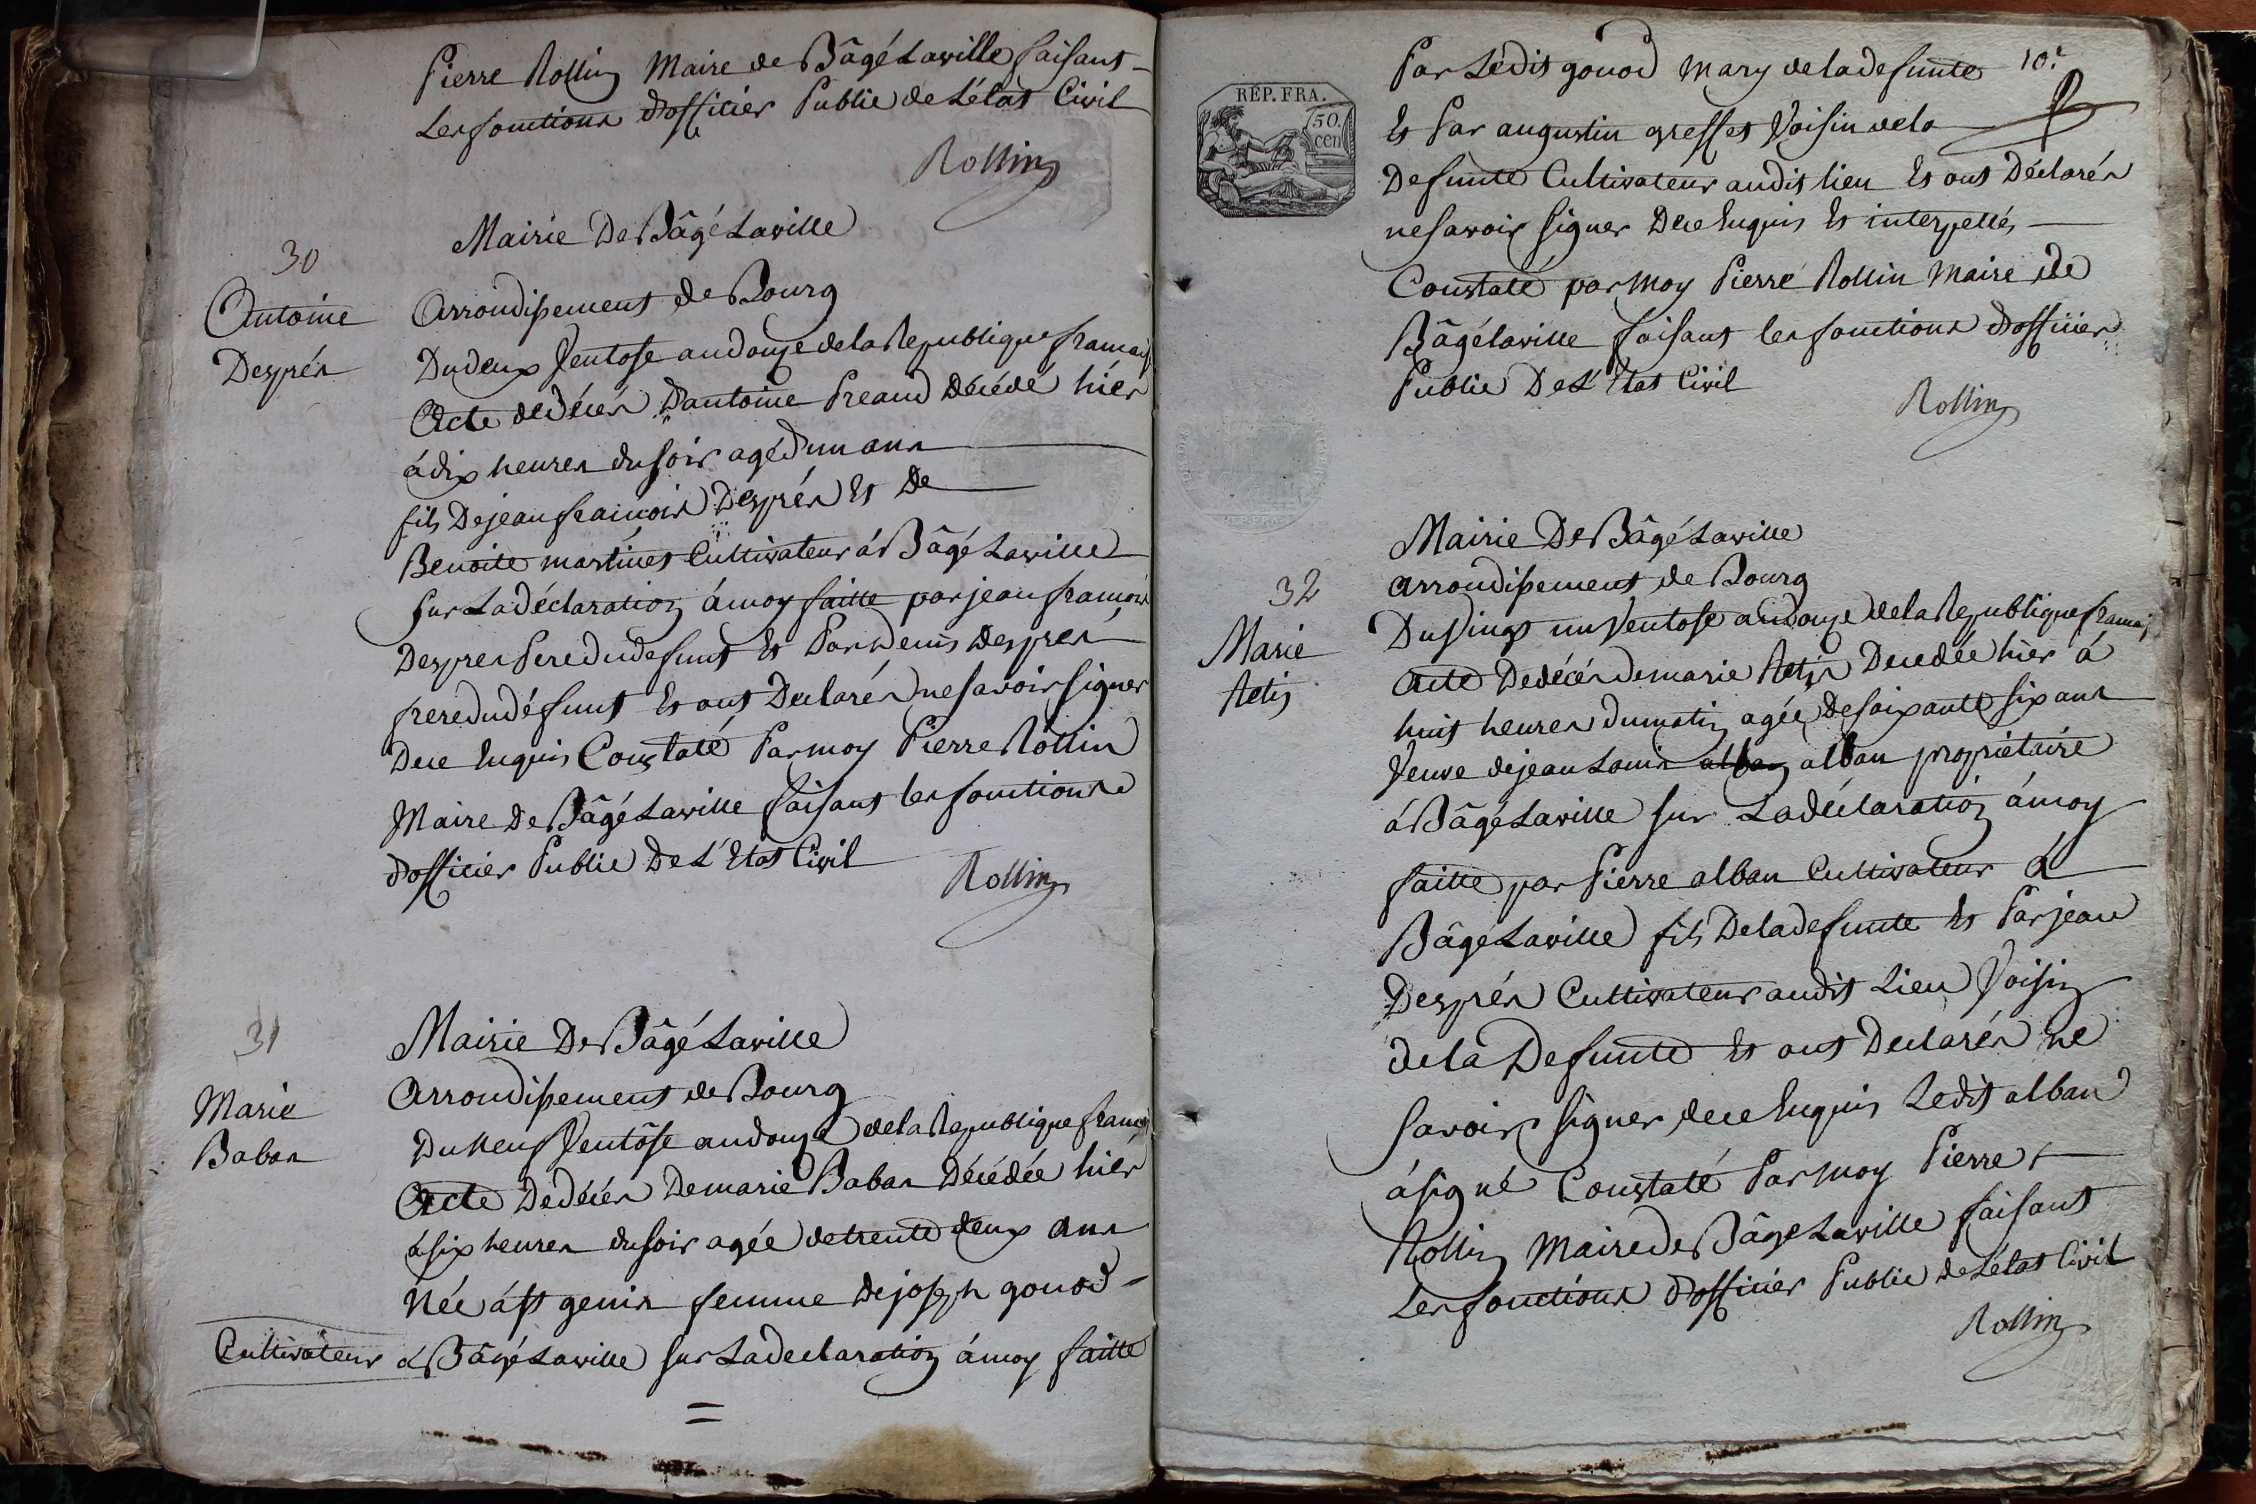 Pierre Rollin Maire de Bâgé Laville faisant
Les fonctions d'officier Public de L'état Civil
Rollin
30
Antoine
Després
Mairie De Bâgé Laville
Arrondissement de Bourg
Du deux Ventose an douze de la Republique français
Acte de décés D'antoine Preaud Décédé hiér
á dix heures du soir agé d'un ans
fils De jean francois Després Et De
Benoite martinet Cultivateur á Bâgé Laville
sur La déclaration á moy faitte par jean francois
Despres Pere du defunt Et Par Denis Despres
frere du défunt Et ont Declarés ne savoir signer
De ce Enquis Constaté Par moy Pierre Rollin
Maire De Bâgé Laville faisant les fonctions
d'officier Public De L'Etat Civil
Rollin
31
Marie
Baban
Mairie De Bâgé Laville
Arrondissement de Bourg
Du Neuf Ventôse an douze de la Republique franç
Acte De décés De marie Baban Décédée hiér
á six heures du soir agée de trente deux ans
Née á st genis femme De joseph gonod
Cultivateur á Bâgé Laville sur La declaration á moy faitte
=
10.e
REP. FRA.
50
cen
Par Ledit gonod mary de la defunte
Et Par augustin gresset Voisin de la
Defunte Cultivateur audit lieu Et ont Déclarés
ne savoir signer De ce Enquis Et interpellés
Constaté par moy Pierre Rollin Maire de
Bâgé laville faisant les fonctions d'officier
Public De L'Etat Civil
Rollin
32
Marie
Mairie De Bâgé Laville
arrondissement de Bourg
Du Vingt un Ventose an douze de la Republique françai
Acte De décés de marie Decedée hiér á
huit heures du matin agée De soixante six ans
Veuve de jean Louis alban alban propriétaire
á Bâgé Laville sur La déclaration á moy
faitte par Pierre alban Cultivateur á
Bâgé Laville fils De la defunte Et Par jean
Després Cultivateur audit Lieu Voisin
de la Defunte Et ont Declarés ne
savoir signer de ce Enquis Ledit alban
á signé Constaté Par moy Pierre
Rollin Maire de Bâgé Laville faisant
Les fonctions d'officier Public de L'état Civil
Rollin